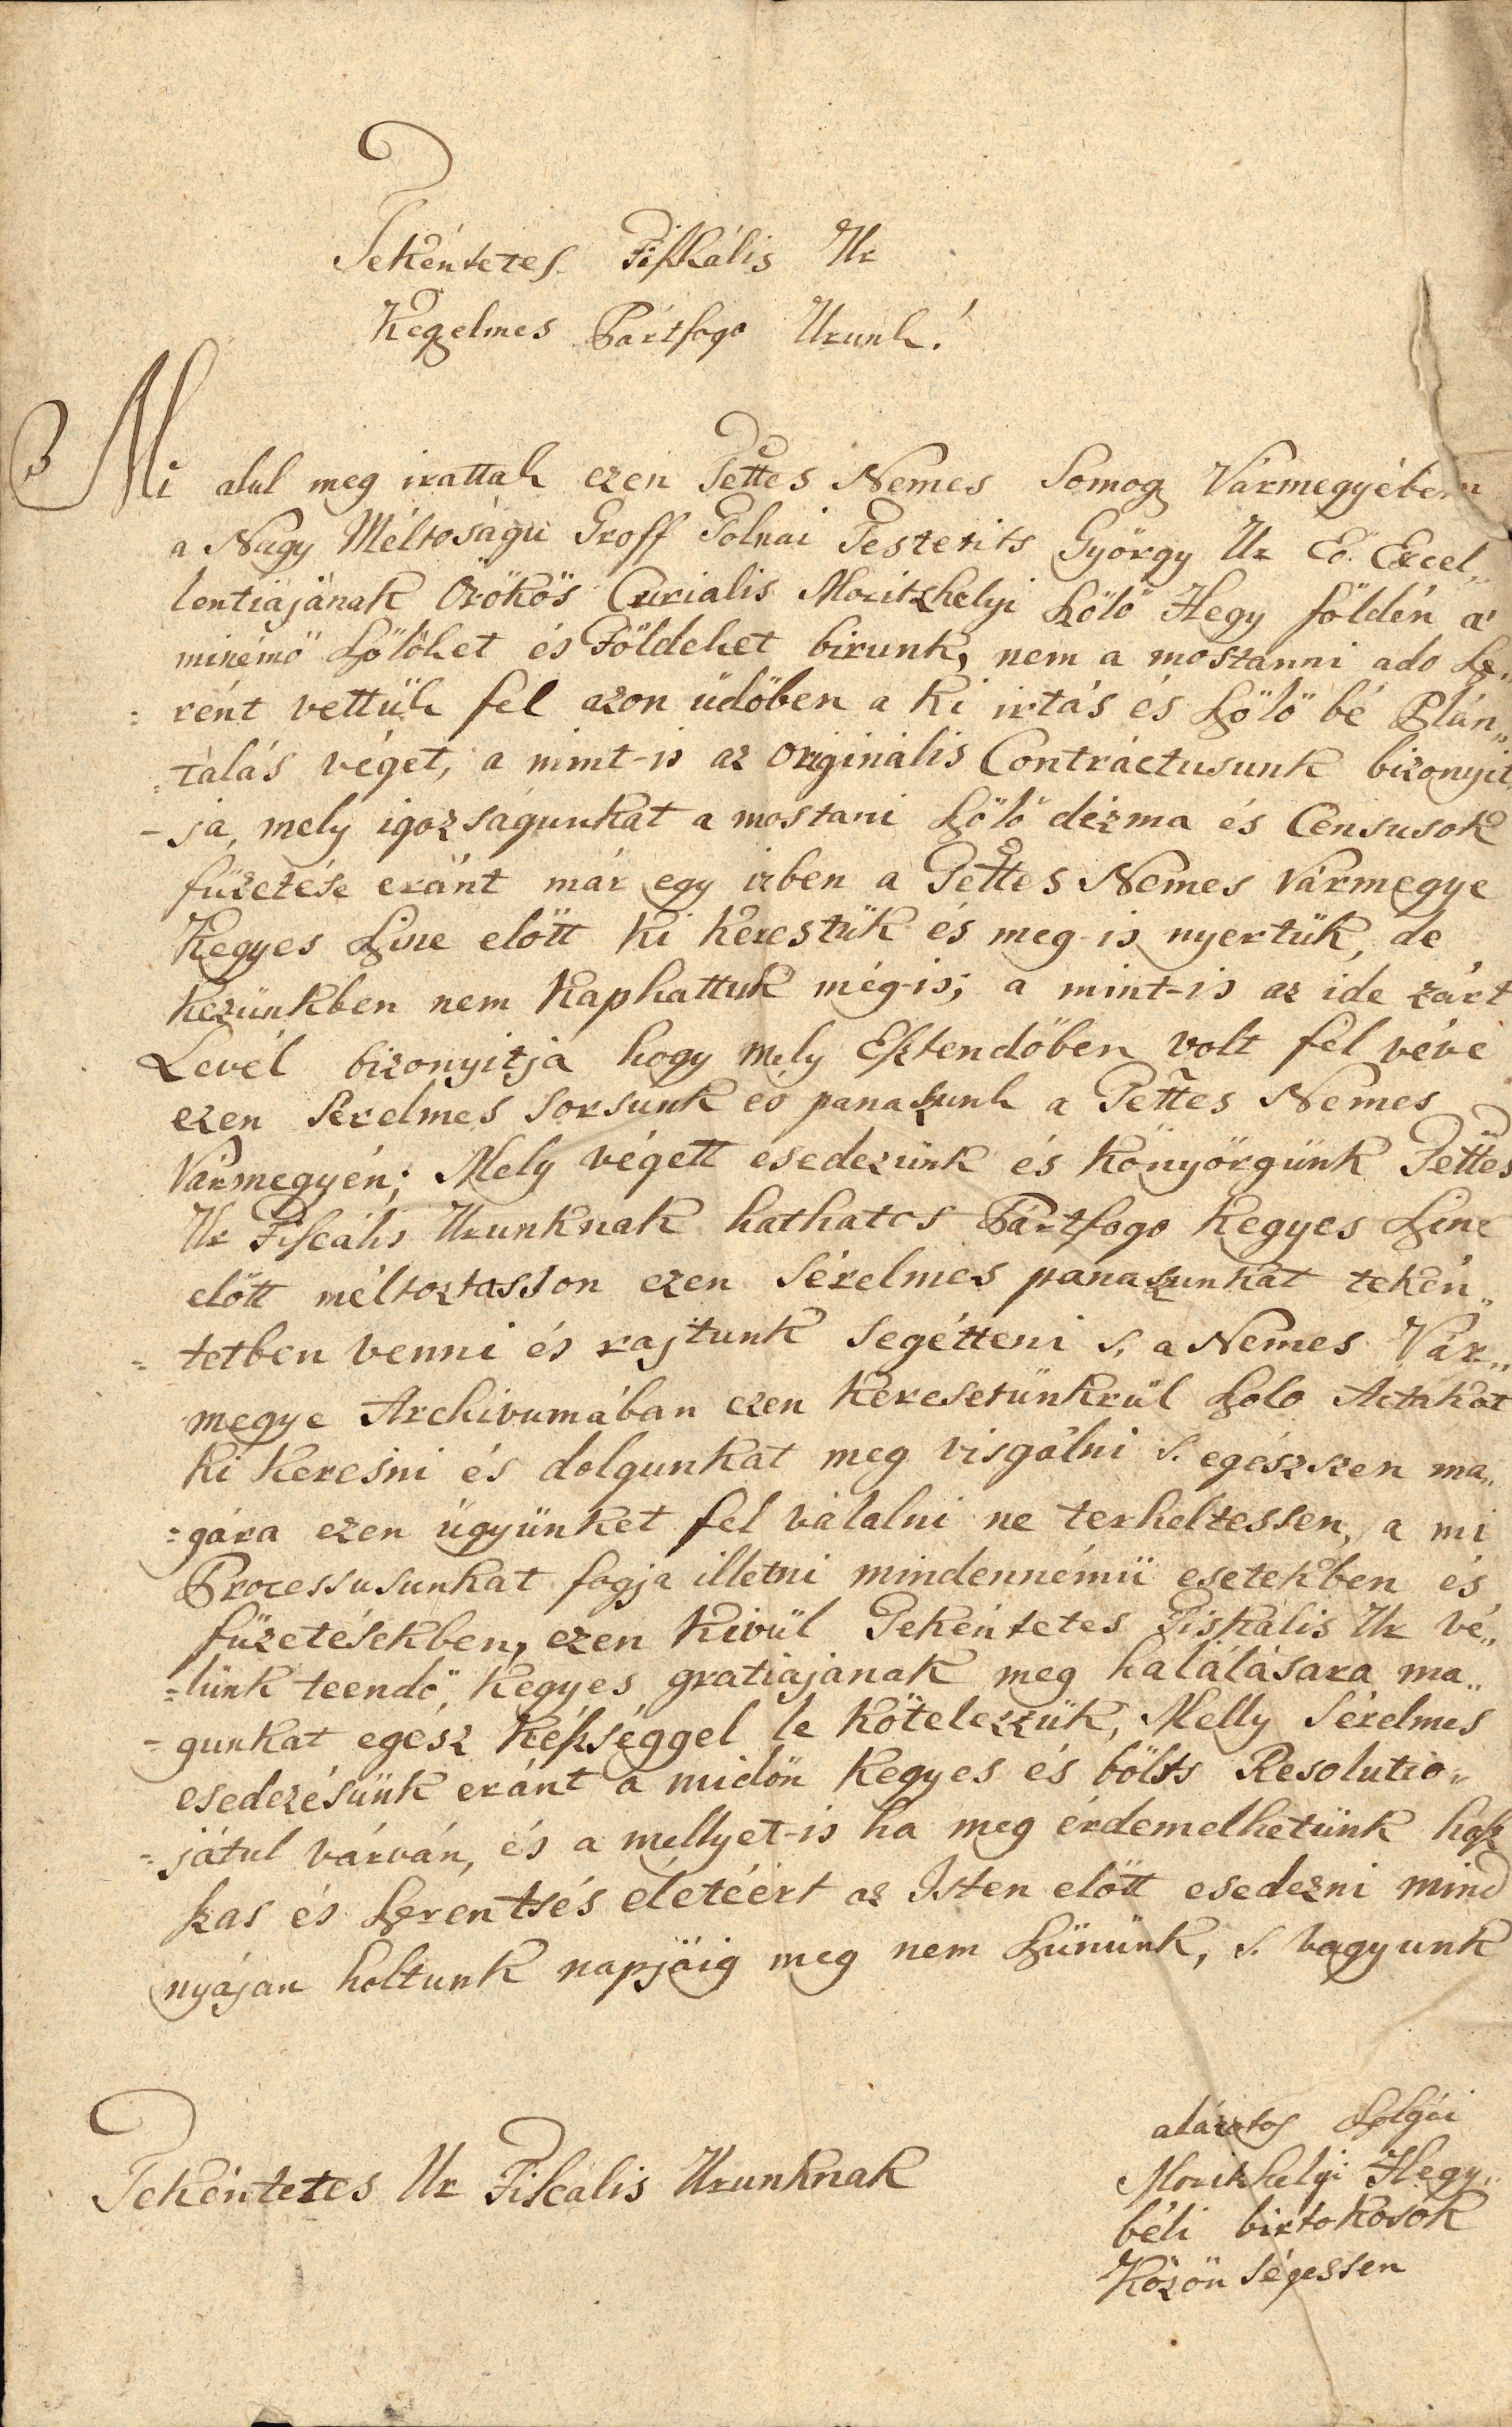 Tekéntetes Fiskális Ur
Kegyelmes Pártfogo Urunk!
Mi alul meg irattak ezen Tettes Nemes Somogy Vármegyében
a Nagy Méltoságu Groff Tolnai Festetits György Ur Eö Excel„
lentiájának Örökös Curialis Moritzhelyi Szölö Hegy földén a'
minémö Szölöket és Földeket birunk, nem a mostanni ado Sze„
: rént vettük fel azon üdöben a ki irtás és Szölö bé Plán„
: tálás véget, a mint-is az Originális Contráctusunk bizonyit
- ja, mely igazságunkat a mostani Szölö dézma és Censusok
füzetése eránt már egy izben a Tettes Nemes Vármegye
Kegyes Szine elött ki kerestük és meg-is nyertük, de
kezünkben nem kaphattuk még-is; a mint-is az ide zárt
Levél bizonyitja hogy mely Esztendöben volt fel véve
ezen Serelmes sorsunk es panaszunk a Tettes Nemes
Vármegyén; Mely végett esedezünk és könyörgünk Tettes
Ur Fiscális Urunknak hathatos Pártfogo Kegyes Szine
elött méltoztasson ezen Sérelmes panaszunkat tekén„
= tetben venni és rajtunk segétteni s. a Nemes Vár„
megye Archivumában ezen keresetünkrül Szolo Actákat
ki keresni és dolgunkat meg visgálni s. egészszen ma„
= gára ezen ügyünket fel válalni ne terheltessen, a mi
Processusunkat fogja illetni mindennémü esetekben és
füzetésekben, ezen kivül Tekéntetes Fiskális Ur vé„
= lünk teendö, kegyes gratiájanak meg halálására ma„
- gunkat egész készséggel le kötelezzük, Melly Sérelmes
esedezésünk eránt a midön kegyes és bölts Resolutio„
- játul várván, és a mellyet-is ha meg érdemelhetünk hosz
szas és Szerentsés életéért az Isten elött esedezni mind
nyájan holtunk napjáig meg nem Szününk, s. vagyunk
Tekéntetes Ur Fiscális Urunknak
alázatos Szolgái
Moritzhelyi Hegy„
béli birtokosok
Közönségessen